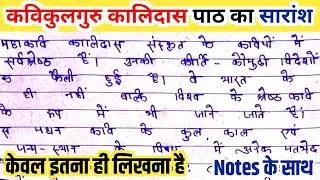 कविकुलगुरु कालिदास पाठ का सारांश
महाकवि कालिदास संस्कृत के कवियों में
सर्वश्रेष्ठ हैं। उनकी कीर्ति-कौमुदी विदेशों
फैली हुई है। वे भारत के
ही नहीं बल्कि विश्व के श्रेष्ठ कवि
के रूप में भी जाने जाते हैं।
स महान कवि के कुल, काल एवं
जन्म-स्थान के विषय में अनेक मतभेद
केवल इतना ही लिखना है
Notes के साथ